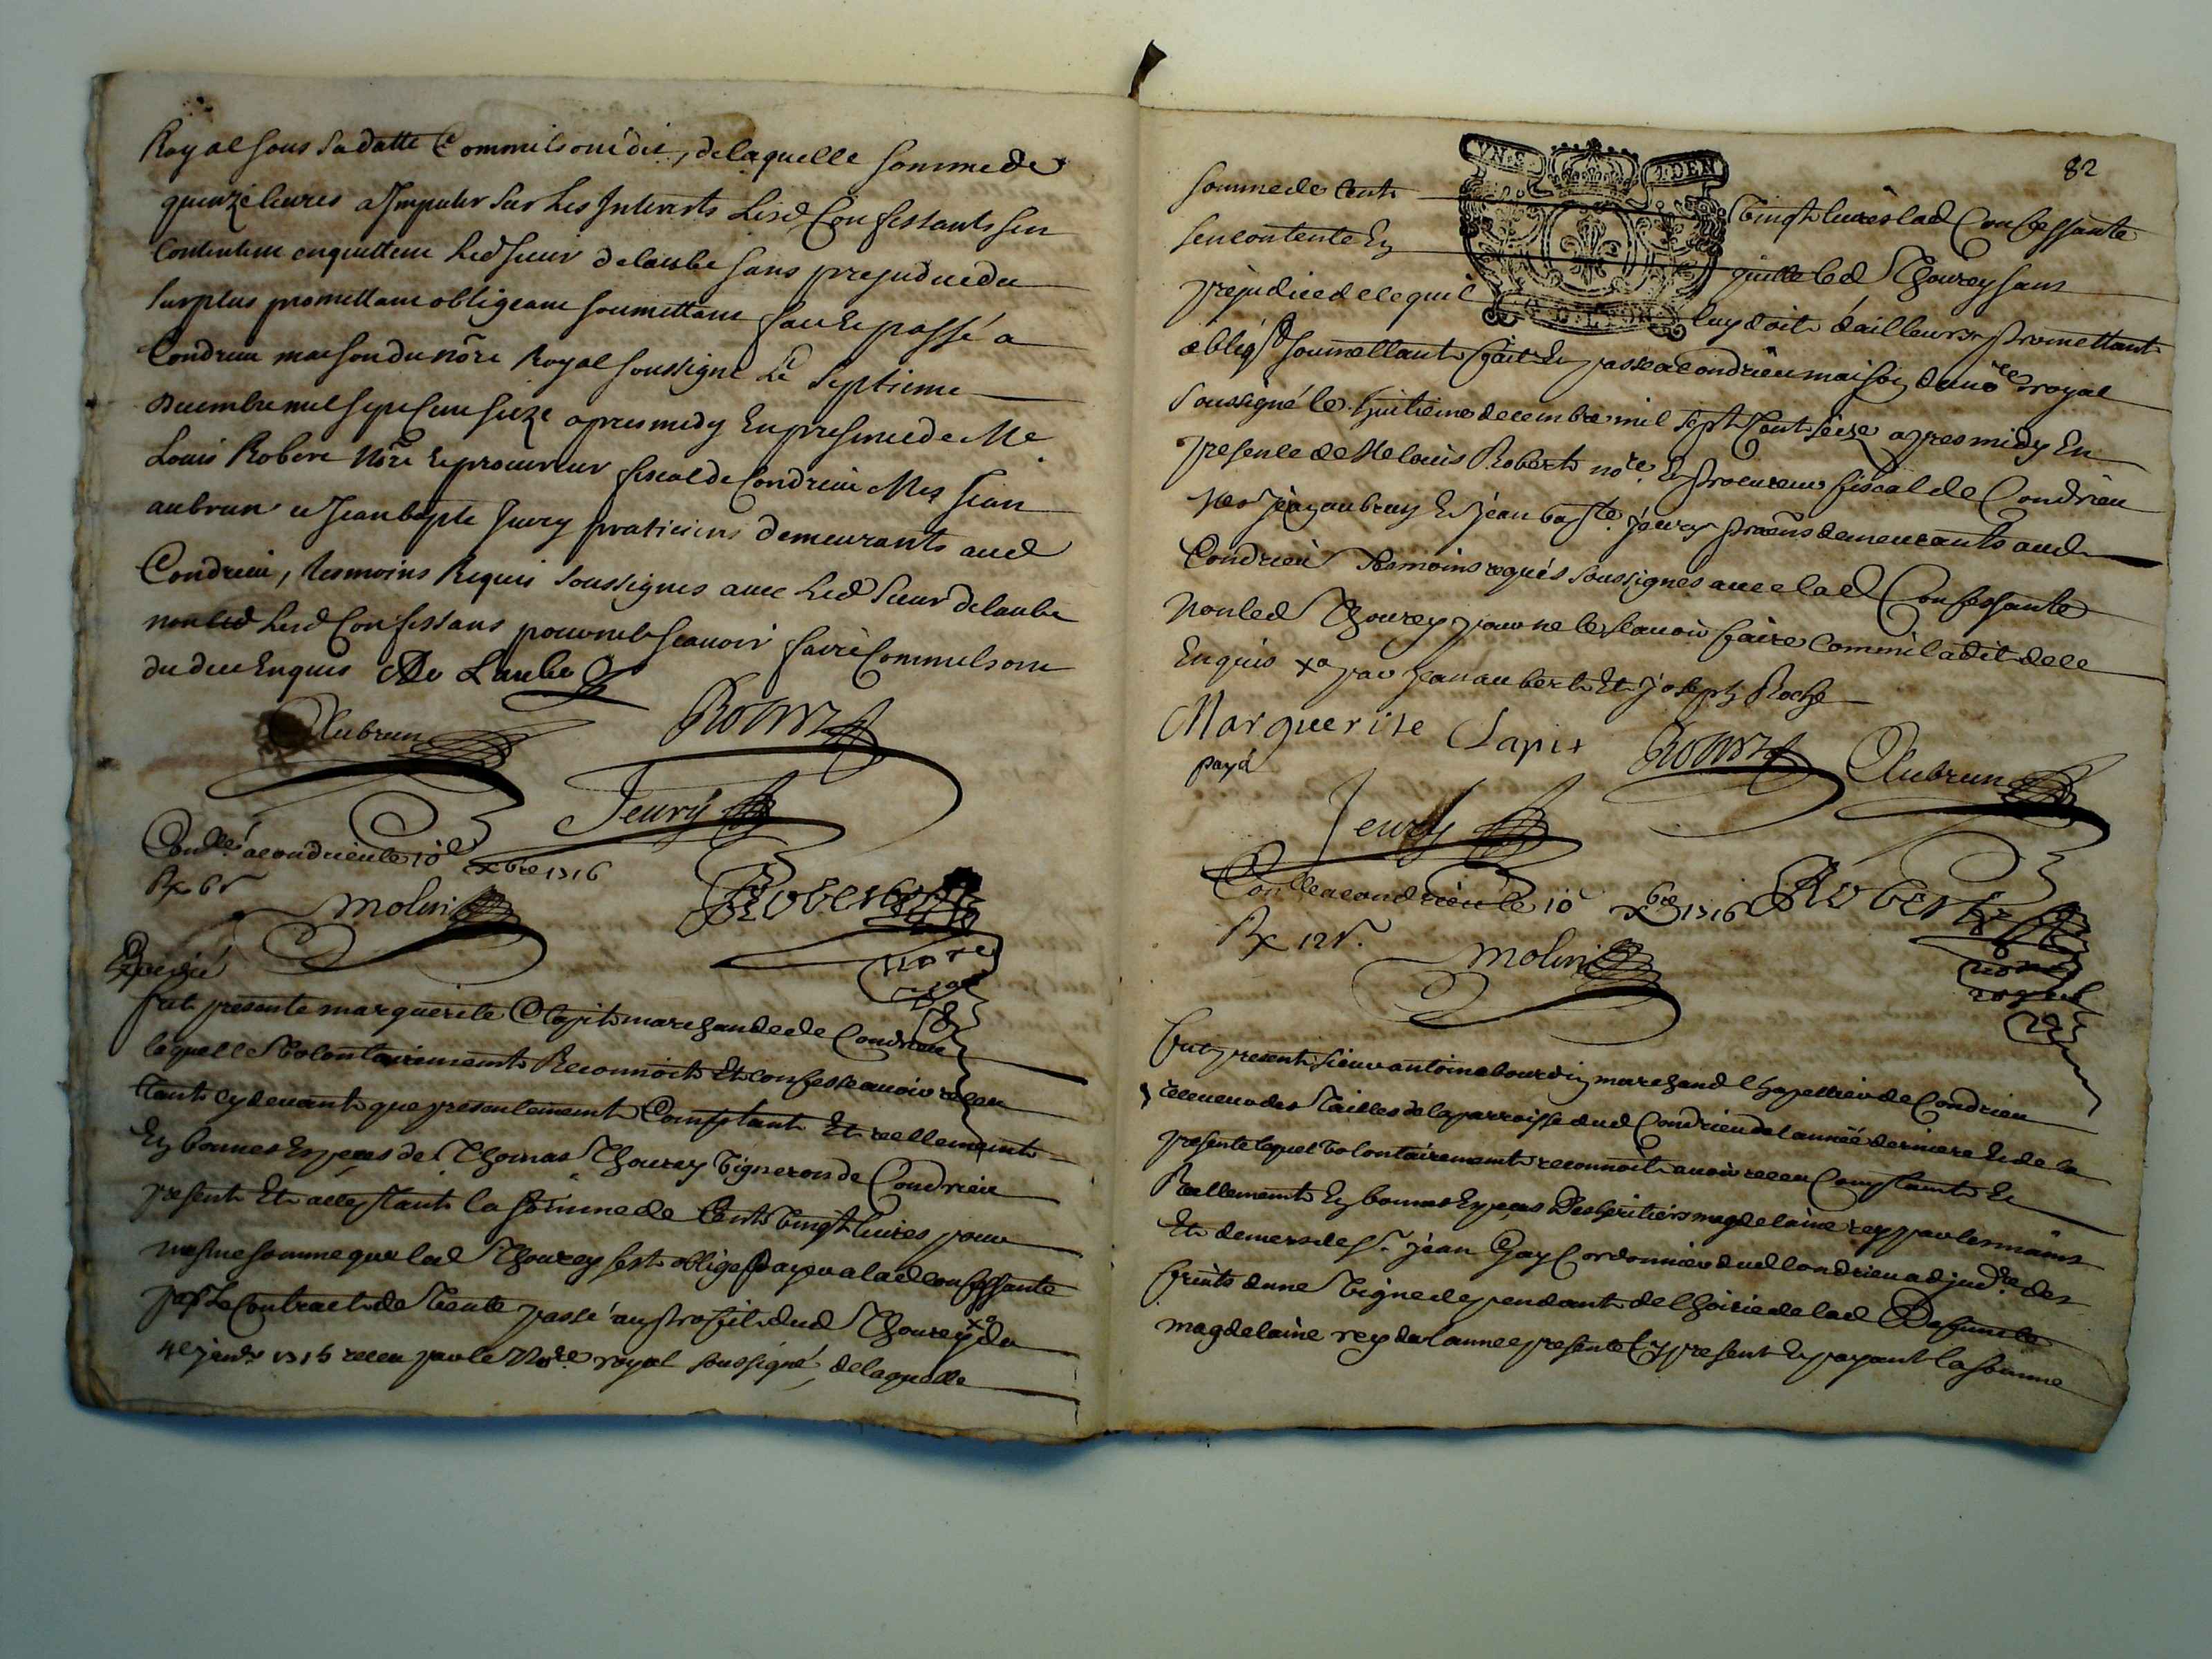 Royal sous sa datte Comme ils ont dit, de laquelle somme de
quinze livres a Imputer sur Les Interests Lesd Confessants sen
Contentent en quittent Led sieur delaube sans prejudice du
surplus promettant obligeant soumettant fait Et passé a
Condrieu maison du nore Royal soussigné Le septieme
decembre mil sept cent seize apres midy En presence de Me
Louis Robert Nore Et procureur fiscal de Condrieu Mes Jean
aubrun et Jean bapte Jeury praticiens demeurants aud
Condrieu, tesmoins Requis soussignes avec Led sieur delaube
non Lesd Confessans pour ne le scavoir faire Comme ils ont
dit de ce Enquis De Laube
Aubrun
Jeury
Conllé a condrieu le 10e xbre 1716
Rx 6 s
Molin
Robert
nore
royal
fut presente marguerite Clapit marchande de Condrieu
laquelle Volontairement Reconnoit Et confesse avoir receu
tant cy devant que presentement Comptant Et reellement
En bonnes Especes de Thomas Thourey Vigneron de Condrieu
present Et acceptant la somme de Cent Vingt livres pour
mesme somme que led Thourey sest obligé payer a lad confessante
par Le Contract de Vente passé au proffit dud Thourey xa du
4e janvr 1715 receu par le Nore royal soussigné, de laquelle
82
D LYON
somme de Cent Vingt livres lad Confessante
sen contente En quitte led Thourey sans
prejudice de ce quil luy doit dailleurs promettant
obligt soumettant fait Et passé a Condrieu maison du nore royal
soussigné le huitieme decembre mil sept Cent seize apres midy En
presence de Me louis Robert nore Et procureur fiscal de Condrieu
Mes jean aubrun Et jean bapte jeury pratens demeurants aud
Condrieu Temoins requis soussignés avec lad Confessante
Non led Thourey pour ne le scavoir faire Comme il a dit de ce
Enquis xa par jean aubert Et joseph Roche
Marguerite Clapit
payé
Aubrun
Jeury
Conllé a condrieu le 10e xbre 1716
Rx 12 s.
Molin
Robert
nore
royal
fut present sieur antoine bourdin marchand Chapellier de Condrieu
receveur des Tailles de la parroisse dud Condrieu de lannée derniere Et de la
presente lequel Volontairement reconnoit avoir receu Comptant Et
Reellement En bonnes Especes Des heritiers magdelaine rey par les mains
Et deniers de sr. jean Gay Cordonnier dud Condrieu adjudre. des
fruits dune Vigne dependante de lhoirie de lad Defuncte
magdelaine rey de lannee presente Cy present Et payant la somme